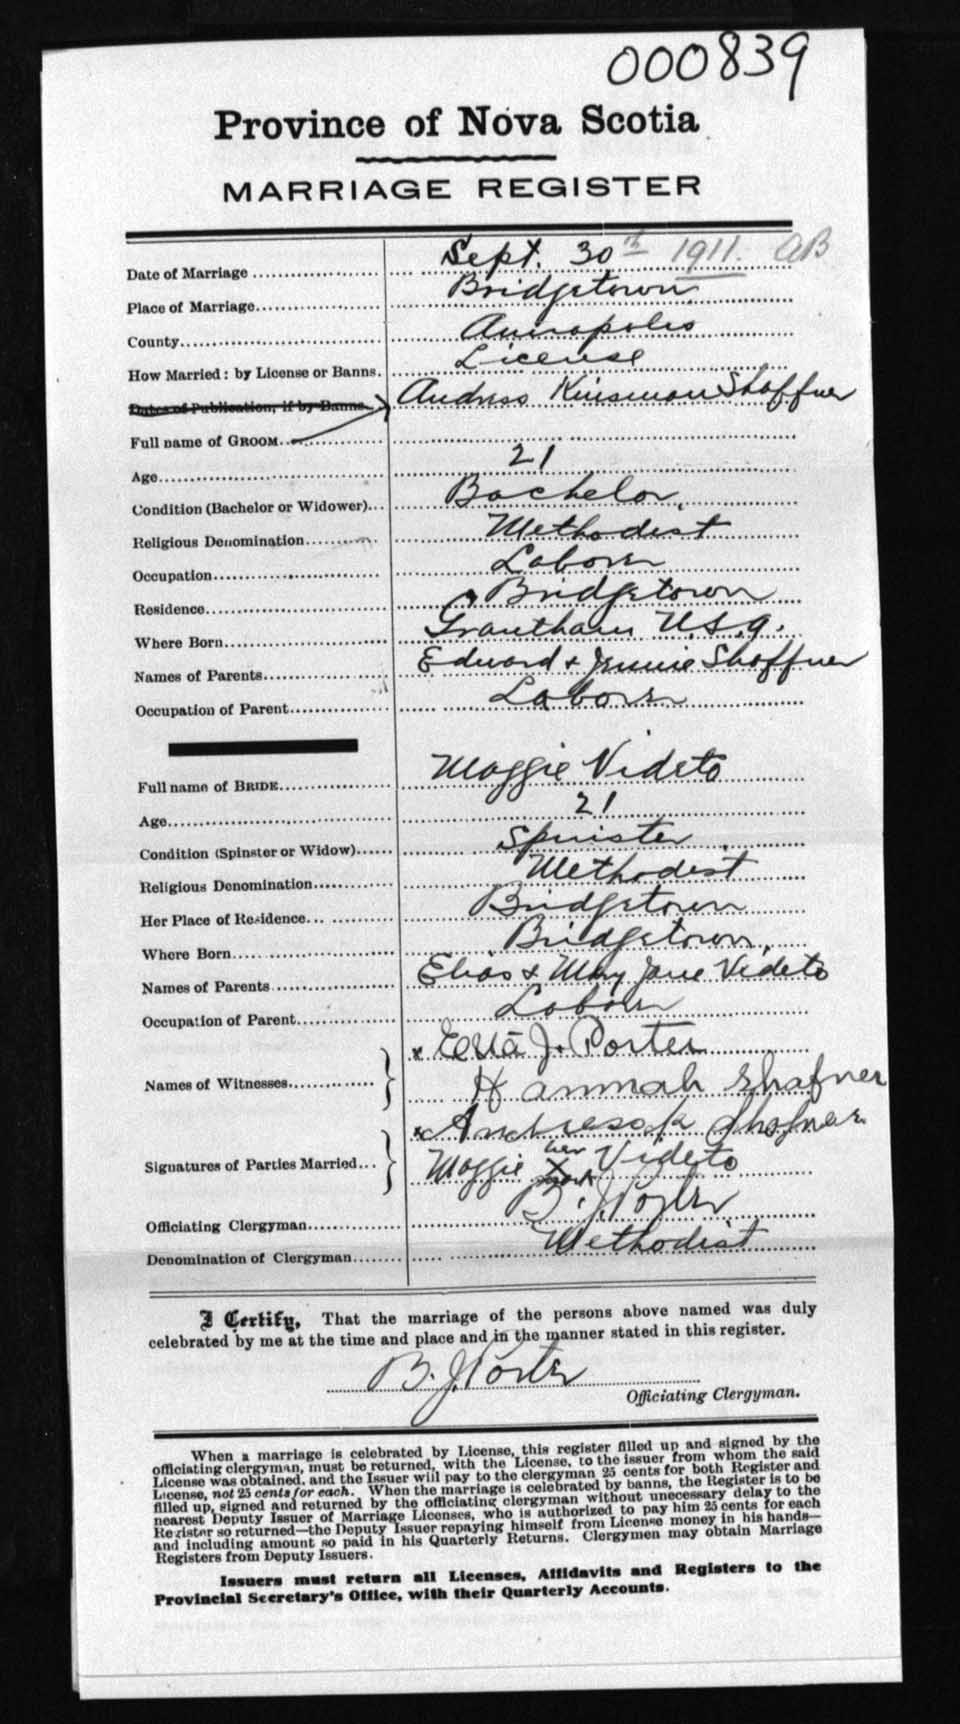 000839
Province of Nova Scotia
MARRIAGE REGISTER
Date of Marriage Sept. 30th 1911. AB
Place of Marriage Bridgetown
County Annapolis
How Married: by License or Banns. License
Dates of Publication, if by Banns Andress Kinsman Shaffner
Full name of GROOM
Age 21
Condition (Bachelor or Widower) Bachelor
Religious Denomination Methodist
Occupation Laborer
Residence Bridgetown
Where Born Grantham U.S.a.
Names of Parents Edward & Jennie Shaffner
Occupation of Parent Laborer
Full name of BRIDE Maggie Videto
Age 21
Condition (Spinster or Widow) Spinster
Religious Denomination Methodist
Her Place of Residence Bridgetown
Where Born Bridgetown
Names of Parents Elias & Mary Jane Videto
Occupation of Parent Laborer
x J. Porter
Names of Witnesses
Hannah Shafner
x Andress k Shafner
Signatures of Parties Married Maggie her X mark Videto
Officiating Clergyman B. J. Porter
Denomination of Clergyman Methodist
I Certify, That the marriage of the persons above named was duly
celebrated by me at the time and place and in the manner stated in this register.
B. J. Porter
Officiating Clergyman.
When a marriage is celebrated by License, this register filled up and signed by the
officiating clergyman, must be returned, with the License, to the issuer from whom the said
License was obtained, and the Issuer will pay to the clergyman 25 cents for both Register and
License, not 25 cents for each. When the marriage is celebrated by banns, the Register is to be
filled up, signed and returned by the officiating clergyman without unnecessary delay to the
nearest Deputy Issuer of Marriage Licenses, who is authorized to pay him 25 cents for each
Register so returned—the Deputy Issuer repaying himself from License money in his hands—
and including amount so paid in his Quarterly Returns. Clergymen may obtain Marriage
Registers from Deputy Issuers.
Issuers must return all Licenses, Affidavits and Registers to the
Provincial Secretary's Office, with their Quarterly Accounts.